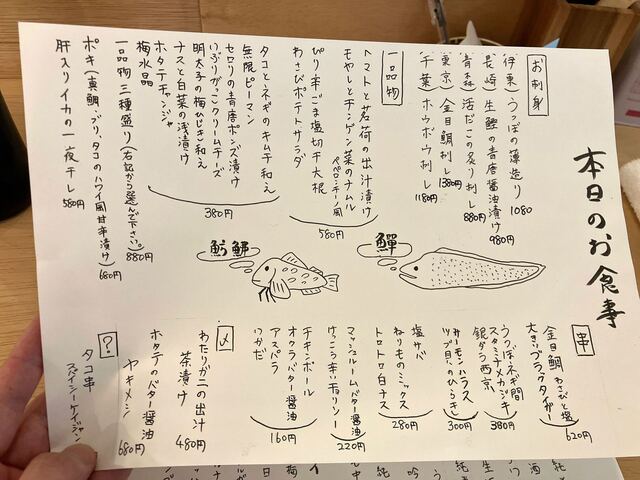 本日のお食事
お刺身
(伊東) うつぼの薄造り 1080
(長崎) 生鯉の青唐醤油漬け 980円
(青森) 活だこの炙り刺し 880円
(東京) 金目鯛刺し 1380円
(千葉) ホウボウ刺し 1180円
一品物
トマトと茗荷の出汁漬け
モヤシとチンゲン菜のナムル
ペペロンチーノ風
ぴり辛ごま塩切干大根
わさびポテトサラダ
580円
タコとネギのキムチ和え
無限ピーマン
セロリの青唐ポンズ漬け
いぶりがっこクリームチーズ
明太子の梅ひじき和え
ナスと白菜の浅漬け
ホタテチャンジャ
梅水晶
380円
一品物三種盛り(右記から選んで下さい。) 880円
ポキ(真鯛、ブリ、タコのハワイ風甘辛漬け) 680円
肝入りイカの一夜干し 580円
鱓
魴鮄
串
金目鯛 わさびと塩
大きいブラックタイガー
620円
うつぼネギ間
スタミナメカジキ
銀ダラ西京
380円
サーモンハラス
ツブ貝
300円
塩サバ
ねりものミックス
トロトロ白ナス
280円
マッシュルームバター醤油
けっこう辛い
220円
チキンボール
オクラバター醤油
アスパラ
いかだ
160円
〆
わたりガニの出汁
茶漬け 480円
ホタテのバター醤油
ヤキメシ 680円
?
タコ串
スパイシーケイジャン